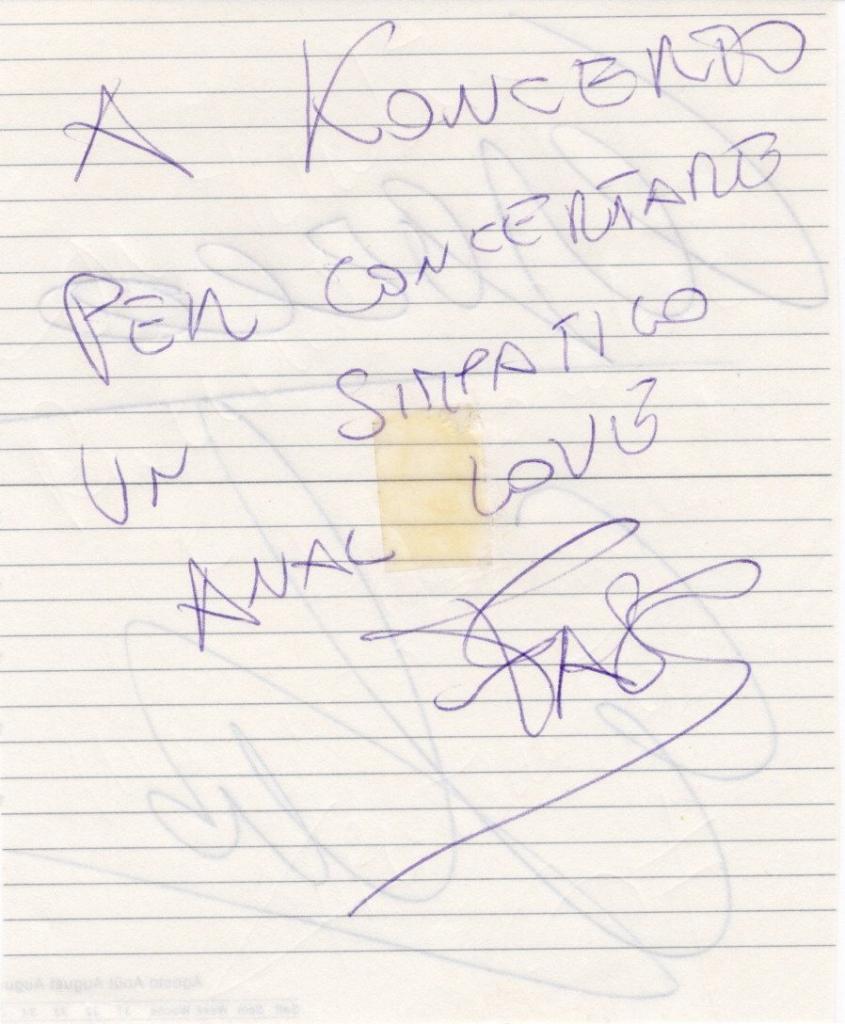 A KONCERTO
PER CONCERTARE
UN SIMPATICO
ANAL LOVE